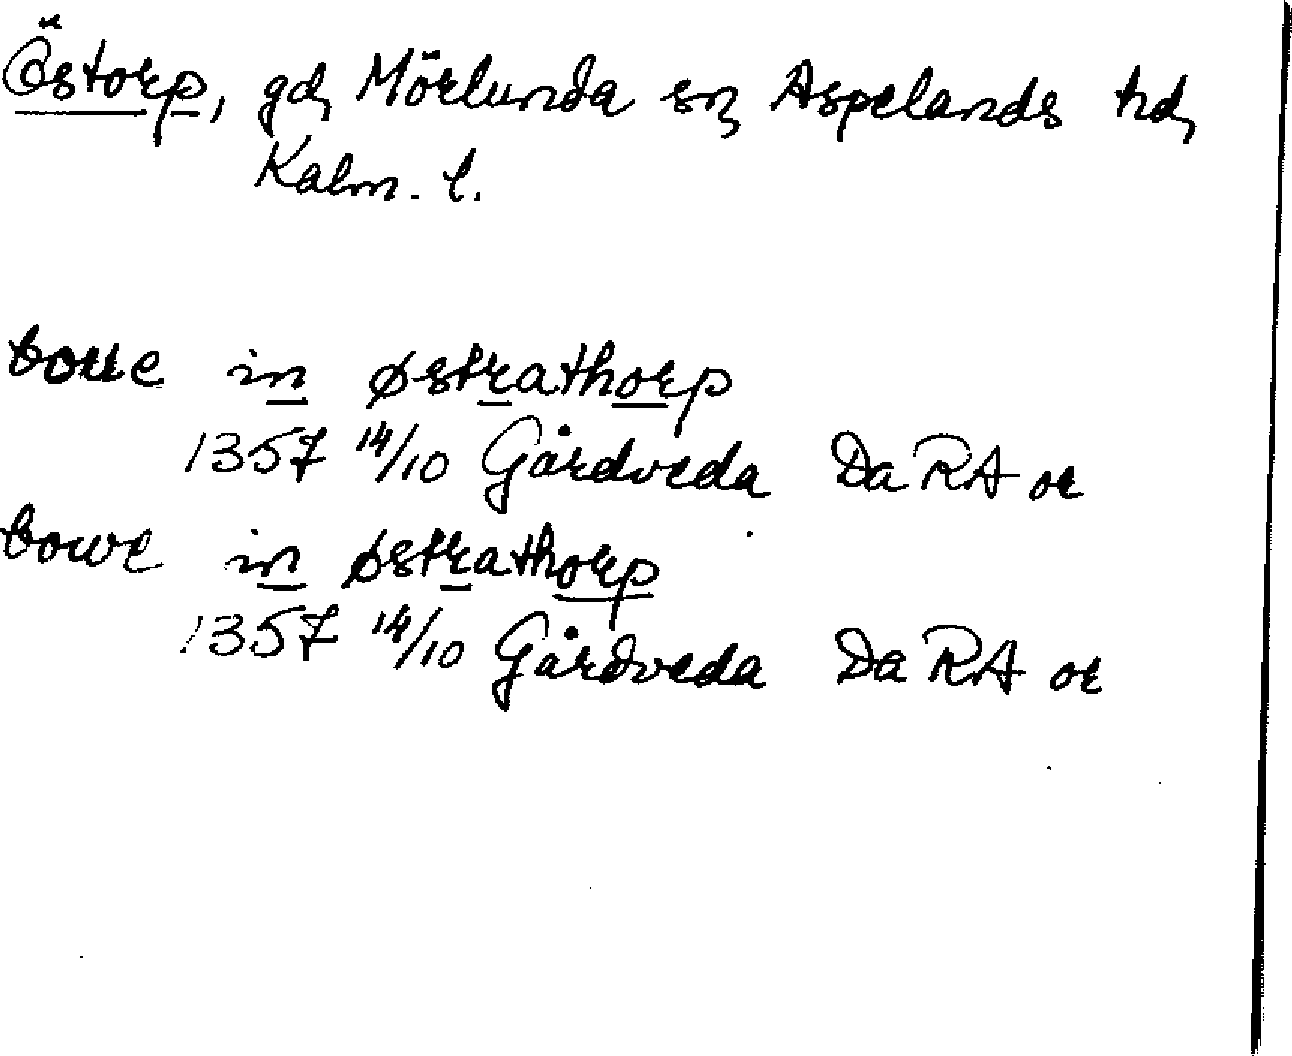 Östorp, gd, Mörlunda sn, Aspelands hd,
Kalm. l.
boue in østrathorp
1357 14/10 Gårdveda Da RA or
bowe in østrathorp
1357 14/10 Gårdveda Da RA or